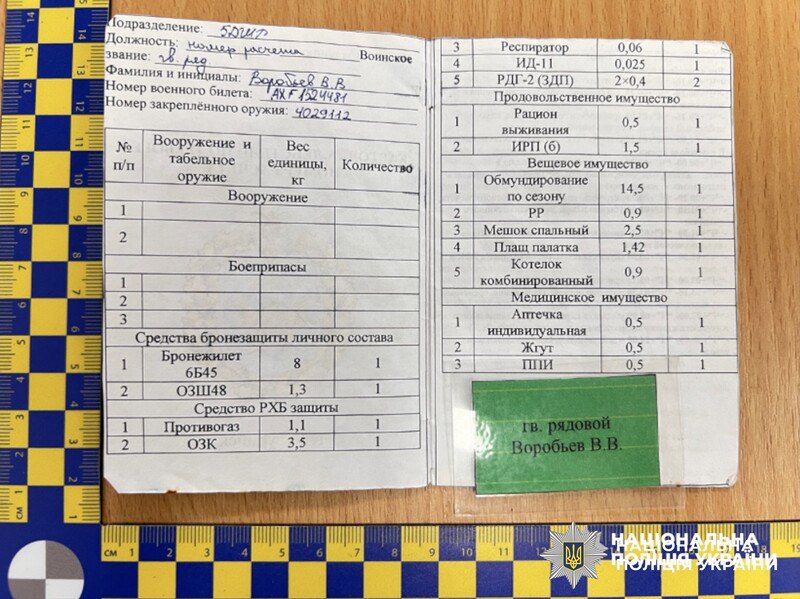 Подразделение:
Должность: номер расчета Воинское
звание: гв. ряд.
Фамилия и инициалы: Воробьев В.В
Номер военного билета: АХГ 1524481
Номер закреплённого оружия: 4029112
№ п/п Вооружение и табельное оружие Вес единицы, кг Количество
Вооружение
1
2
Боеприпасы
1
2
3
Средства бронезащиты личного состава
1 Бронежилет 6Б45 8 1
2 ОЗШ48 1,3 1
Средство РХБ защиты
1 Противогаз 1,1 1
2 ОЗК 3,5 1
3 Респиратор 0,06 1
4 ИД-11 0,025 1
5 РДГ-2 (ЗДП) 2×0,4 2
Продовольственное имущество
1 Рацион выживания 0,5 1
2 ИРП (б) 1,5 1
Вещевое имущество
1 Обмундирование по сезону 14,5 1
2 РР 0,9 1
3 Мешок спальный 2,5 1
4 Плащ палатка 1,42 1
5 Котелок комбинированный 0,9 1
Медицинское имущество
1 Аптечка индивидуальная 0,5 1
2 Жгут 0,5 1
3 ППИ 0,5 1
гв. рядовой
Воробьев В.В.
НАЦІОНАЛЬНА
ПОЛІЦІЯ УКРАЇНИ